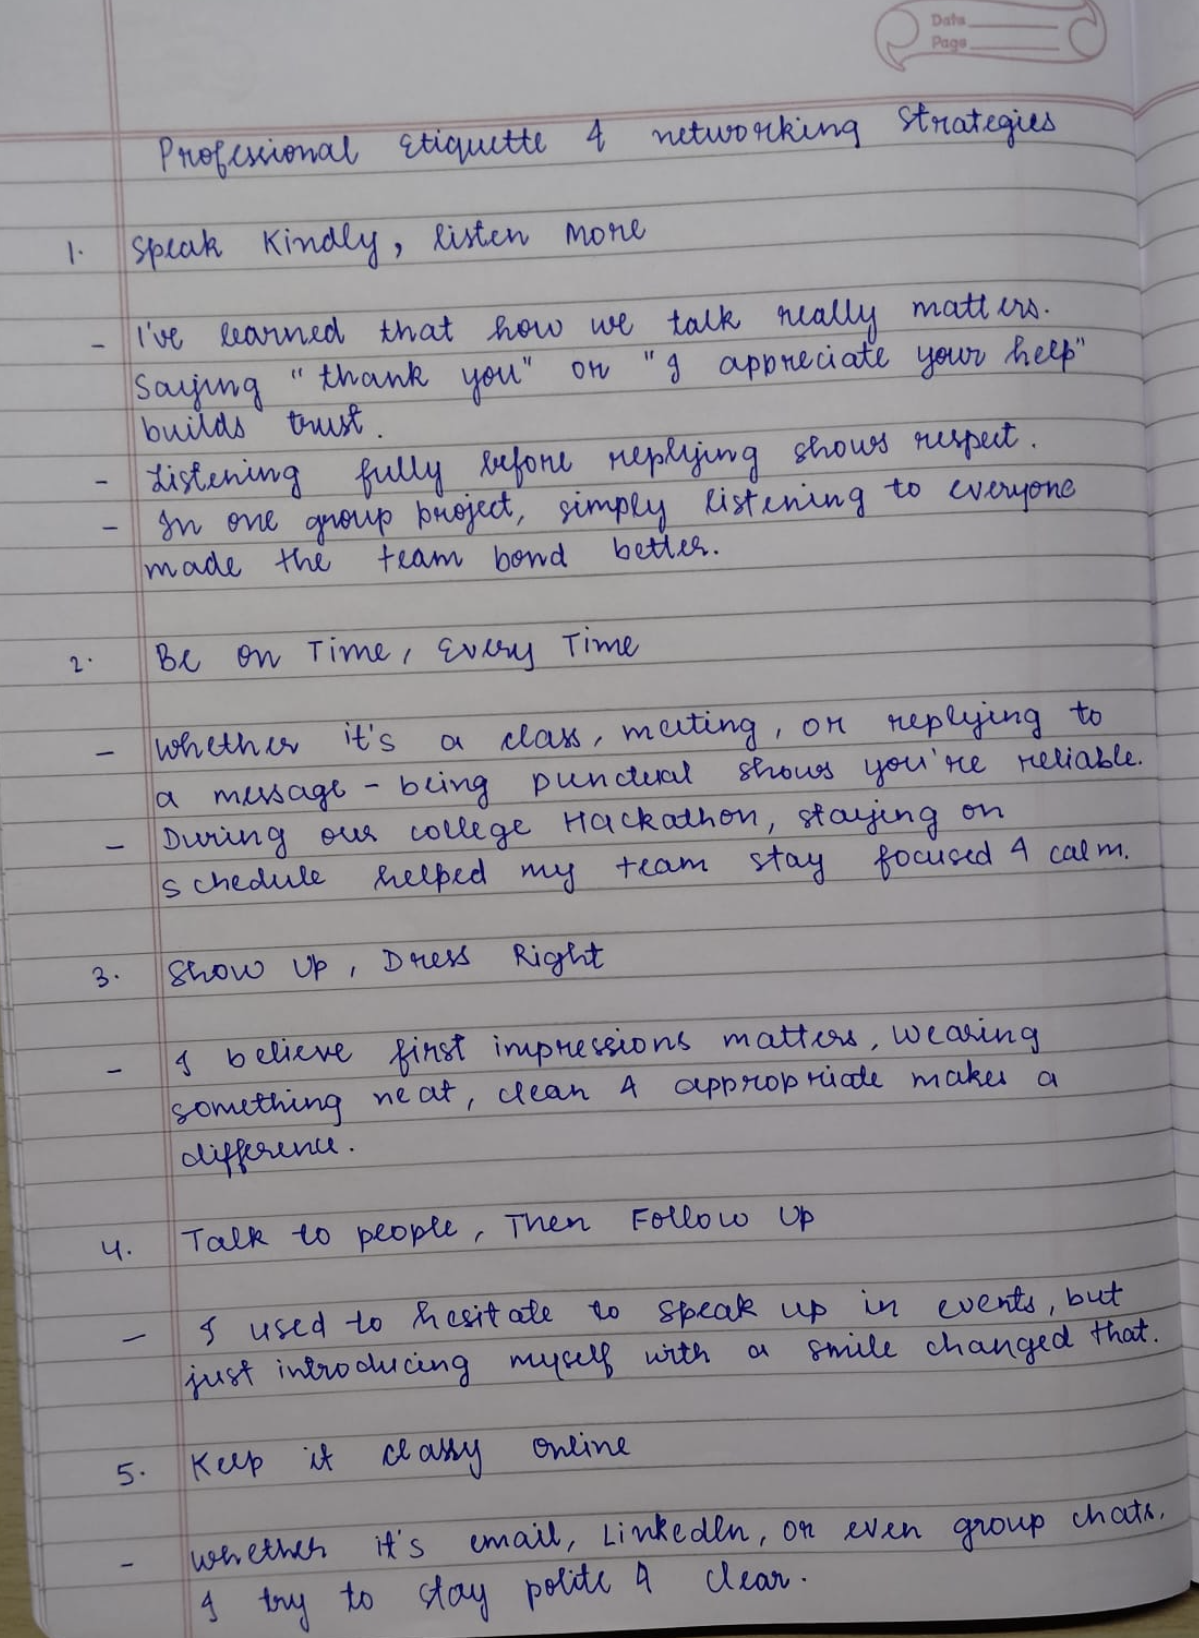 Date
Page
Professional Etiquette & networking Strategies
1. Speak Kindly, listen more
- I've learned that how we talk really matters.
Saying "thank you" or "I appreciate your help"
builds trust.
- Listening fully before replying shows respect.
- In one group project, simply listening to everyone
made the team bond better.
2. Be on Time, Every Time
- Whether it's a class, meeting, or replying to
a message - being punctual shows you're reliable.
- During our college Hackathon, staying on
schedule helped my team stay focused & calm.
3. Show Up, Dress Right
- I believe first impressions matters, wearing
something neat, clean & appropriate makes a
difference.
4. Talk to people, Then Follow Up
- I used to hesitate to speak up in events, but
just introducing myself with a smile changed that.
5. Keep it classy online
- Whether it's email, LinkedIn, or even group chats,
I try to stay polite & clear.